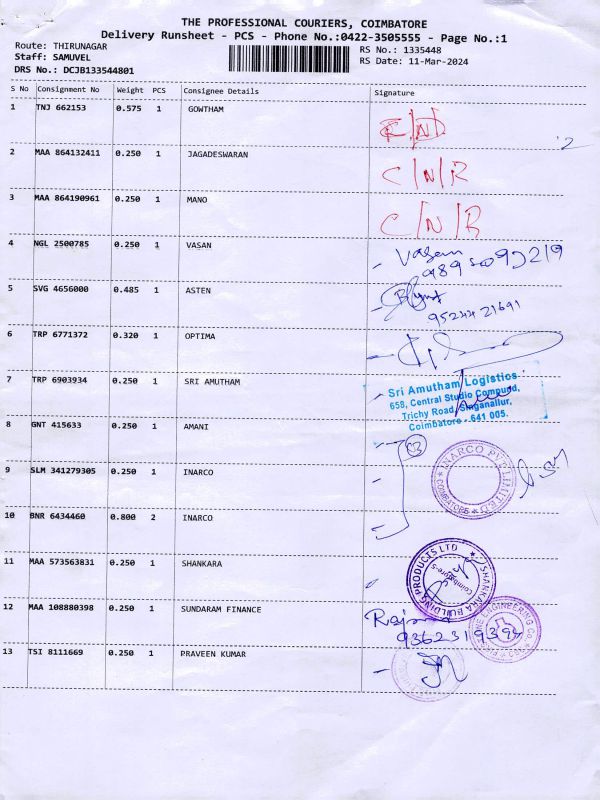 THE PROFESSIONAL COURIERS, COIMBATORE
Delivery Runsheet - PCS - Phone No.:0422-3505555 - Page No.:1
Route: THIRUNAGAR
RS No.: 1335448
Staff: SAMUVEL
RS Date: 11-Mar-2024
DRS No.: DCJB133544801
S No Consignment No Weight PCS Consignee Details Signature
1 TNJ 662153 0.575 1 GOWTHAM
2 MAA 864132411 0.250 1 JAGADESWARAN C/N/R
3 MAA 864190961 0.250 1 MANO C/N/R
4 NGL 2500785 0.250 1 VASAN Vasan
5 SVG 4656000 0.485 1 ASTEN
6 TRP 6771372 0.320 1 OPTIMA
7 TRP 6903934 0.250 1 SRI AMUTHAM
Sri Amutham Logistics
658, Central Studio Compund,
Trichy Road, Singanallur,
Coimbatore - 641 005.
8 GNT 415633 0.250 1 AMANI
9 SLM 341279305 0.250 1 INARCO
INARCO PVT LIMITED
COIMBATORE
10 BNR 6434460 0.800 2 INARCO
11 MAA 573563831 0.250 1 SHANKARA
SHANKARA BUILDING PRODUCTS LTD
Coimbatore-5
12 MAA 108880398 0.250 1 SUNDARAM FINANCE
13 TSI 8111669 0.250 1 PRAVEEN KUMAR